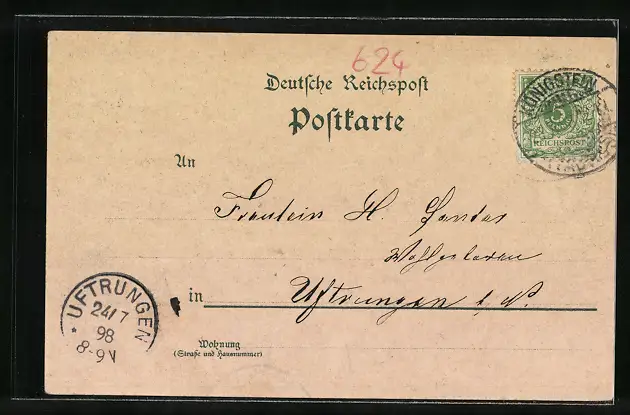 624
Deutsche Reichspost
Postkarte
KÖNIGSTEIN
5
REICHSPOST
An
Fräulein H.
in Uftrungen
UFTRUNGEN
24/7
98
8-9V
Wohnung
(Straße und Hausnummer)